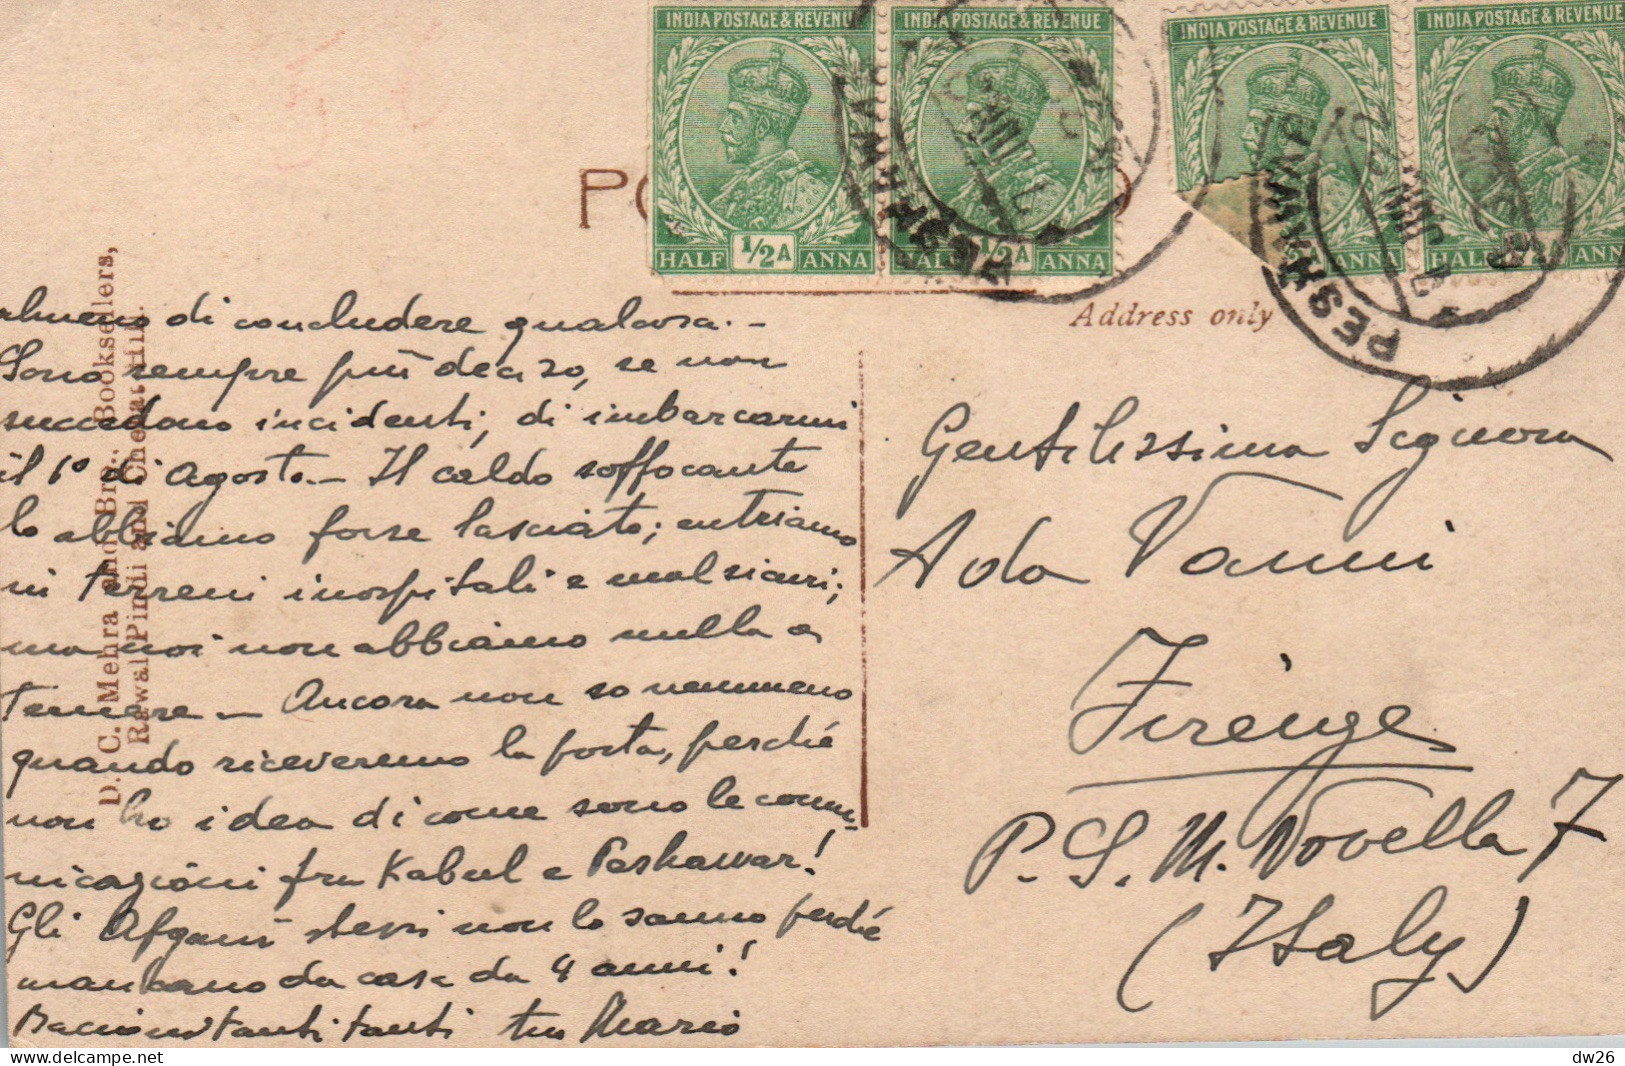 INDIA POSTAGE & REVENUE
HALF 1/2 A ANNA
INDIA POSTAGE & REVENUE
HALF 1/2 A ANNA
INDIA POSTAGE & REVENUE
1/2 A ANNA
INDIA POSTAGE & REVENUE
HALF 1/2 A ANNA
PESHAWAR
PESHAWAR
PO
Address only
D. C. Mehra and Bro., Booksellers,
Rawal Pindi and
almeno di concludere qualcosa. -
Sono sempre più deciso, se non
succedono incidenti, di imbarcarmi
il 1° di Agosto. - Il caldo soffocante
lo abbiamo forse lasciato; entriamo
in terreni inospitali e mal sicuri;
ma noi non abbiamo nulla a
temere - Ancora non so nemmeno
quando riceveremo la posta, perché
non ho idea di come sono le comu-
nicazioni fra Kabul e Peshawar!
Gli Afgani stessi non lo sanno perché
mancano da casa da 4 anni!
Bacioni tanti tanti tuo Mario
Gentilissima Signora
Ada Vanni
Firenze
P. S. M. Novella 7
(Italy)
dw26